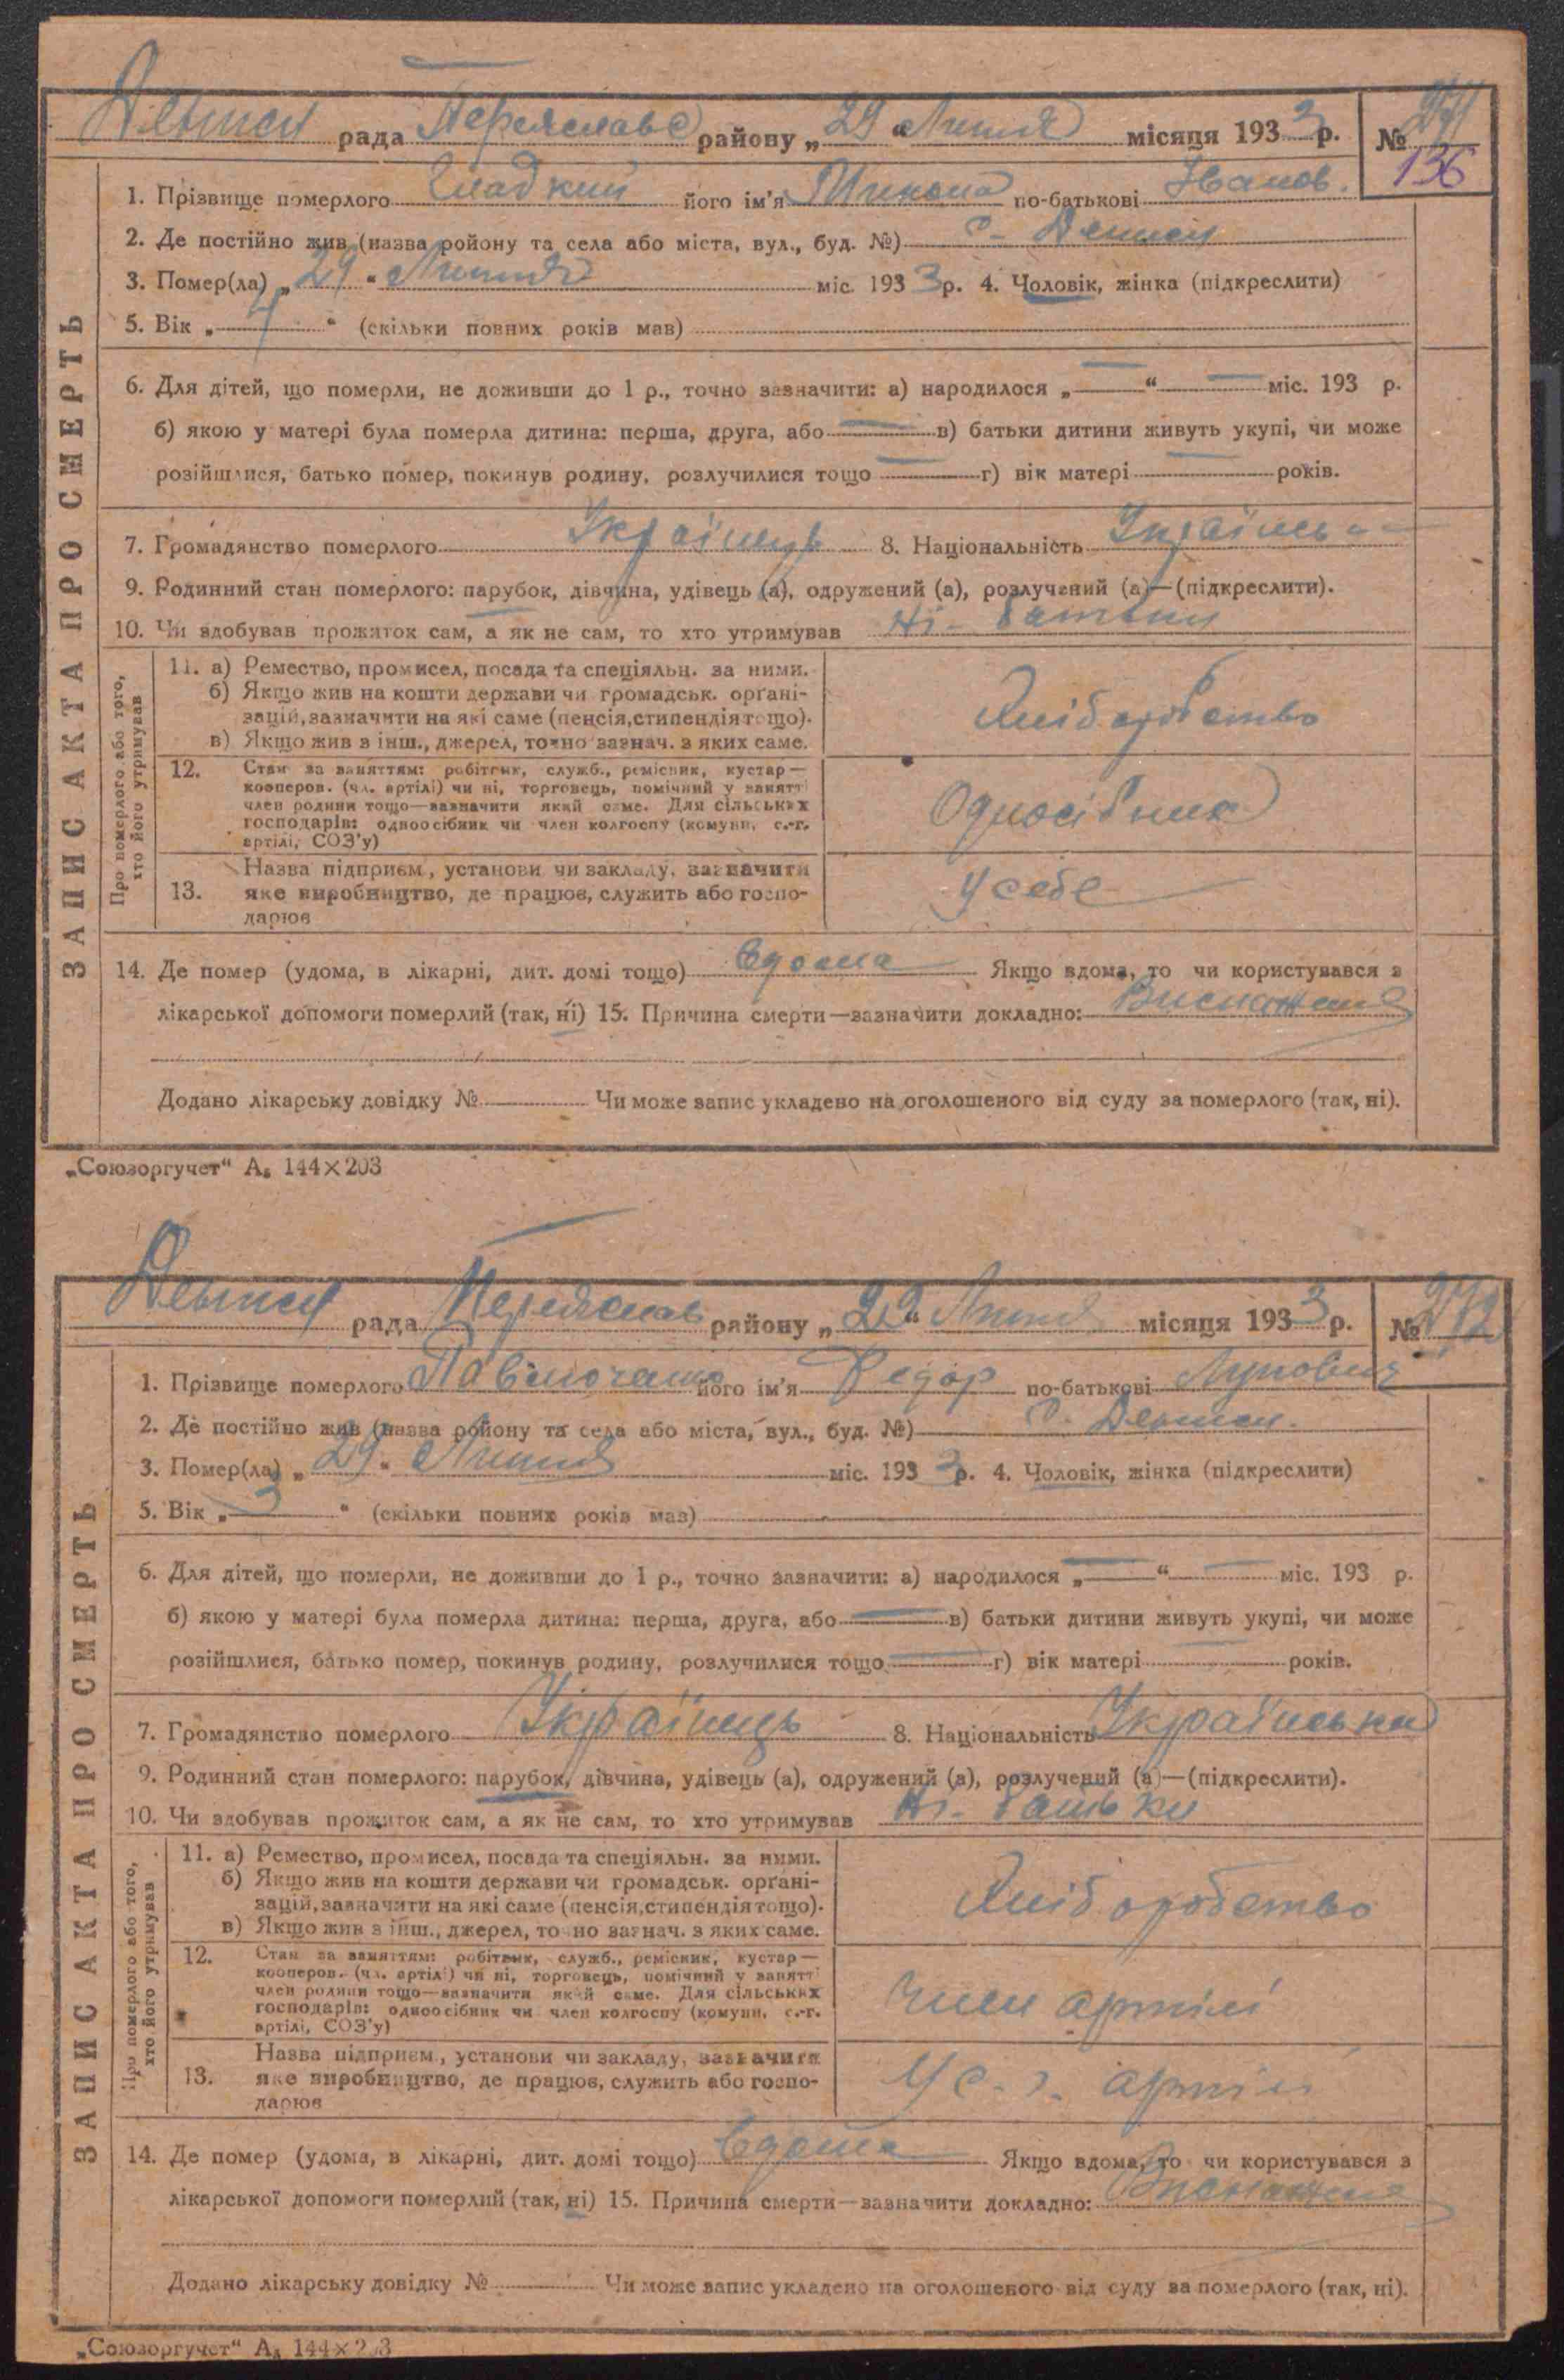 Деньги рада Переяслав району „29“ Липня місяця 1933 р. № 271
136
1. Прізвище померлого Гладкий його ім'я Микола по-батькові Іванов.
2. Де постійно жив (назва ройону та села або міста, вул., буд. №) с. Деньги
3. Помер(ла) „29“ Липня міс. 1933 р. 4. Чоловік, жінка (підкреслити)
5. Вік „7“ (скільки повних років мав)
6. Для дітей, що померли, не доживши до 1 р., точно зазначити: а) народилося „—“ — міс. 193 р.
б) якою у матері була померла дитина: перша, друга, або — в) батьки дитини живуть укупі, чи може
розійшлися, батько помер, покинув родину, розлучилися тощо — г) вік матері — років.
7. Громадянство померлого Українець 8. Національність Українська
9. Родинний стан померлого: парубок, дівчина, удівець (а), одружений (а), розлучений (а)—(підкреслити).
10. Чи здобував прожиток сам, а як не сам, то хто утримував Ні - батьки
ЗАПИС АКТА ПРО СМЕРТЬ
Про померлого або того,
хто його утримував
11. а) Ремество, промисел, посада та спеціяльн. за ними.
б) Якщо жив на кошти держави чи громадськ. органі-
зацій, зазначити на які саме (пенсія, стипендія тощо).
в) Якщо жив з інш., джерел, точно зазнач. з яких саме.
Хліборобство
12. Стан за заняттям: робітник, служб., ремісник, кустар—
кооперов. (чл. артілі) чи ні, торговець, помічний у занятті
член родини тощо—зазначити який саме. Для сільських
господарів: одноосібник чи член колгоспу (комуни, с.-г.
артілі, СОЗ'у)
Одноосібник
13. Назва підприєм., установи чи закладу, зазначити
яке виробництво, де працює, служить або госпо-
дарює
У себе
14. Де помер (удома, в лікарні, дит. домі тощо) вдома Якщо вдома, то чи користувався з
лікарської допомоги померлий (так, ні) 15. Причина смерти—зазначити докладно: Виснаження
Додано лікарську довідку № Чи може запис укладено на оголошеного від суду за померлого (так, ні).
„Союзоргучет“ А₅ 144×203
Деньги рада Переяслав району „29“ Липня місяця 1933 р. № 272
1. Прізвище померлого його ім'я Федор по-батькові Лупович
2. Де постійно жив (назва ройону та села або міста, вул., буд. №) с. Деньги.
3. Помер(ла) „29“ Липня міс. 1933 р. 4. Чоловік, жінка (підкреслити)
5. Вік „3“ (скільки повних років мав)
6. Для дітей, що померли, не доживши до 1 р., точно зазначити: а) народилося „—“ — міс. 193 р.
б) якою у матері була померла дитина: перша, друга, або — в) батьки дитини живуть укупі, чи може
розійшлися, батько помер, покинув родину, розлучилися тощо — г) вік матері — років.
7. Громадянство померлого Українець 8. Національність Українська
9. Родинний стан померлого: парубок, дівчина, удівець (а), одружений (а), розлучений (а)—(підкреслити).
10. Чи здобував прожиток сам, а як не сам, то хто утримував Ні - батьки
ЗАПИС АКТА ПРО СМЕРТЬ
Про померлого або того,
хто його утримував
11. а) Ремество, промисел, посада та спеціяльн. за ними.
б) Якщо жив на кошти держави чи громадськ. органі-
зацій, зазначити на які саме (пенсія, стипендія тощо).
в) Якщо жив з інш., джерел, точно зазнач. з яких саме.
Хліборобство
12. Стан за заняттям: робітник, служб., ремісник, кустар—
кооперов. (чл. артілі) чи ні, торговець, помічний у занятті
член родини тощо—зазначити який саме. Для сільських
господарів: одноосібник чи член колгоспу (комуни, с.-г.
артілі, СОЗ'у)
член артілі
13. Назва підприєм., установи чи закладу, зазначити
яке виробництво, де працює, служить або госпо-
дарює
У с.-г. артілі
14. Де помер (удома, в лікарні, дит. домі тощо) вдома Якщо вдома, то чи користувався з
лікарської допомоги померлий (так, ні) 15. Причина смерти—зазначити докладно: Виснаження
Додано лікарську довідку № Чи може запис укладено на оголошеного від суду за померлого (так, ні).
„Союзоргучет“ А₅ 144×203